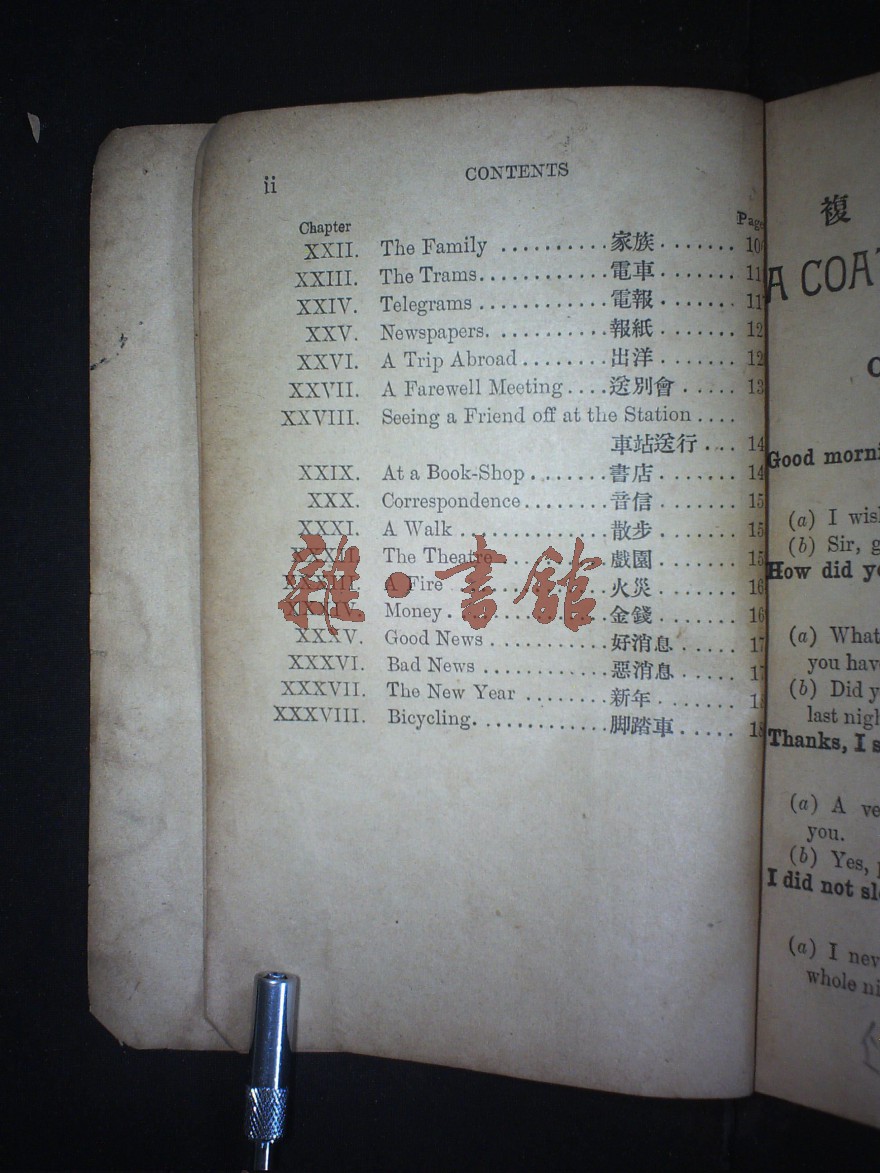 ii
CONTENTS
Chapter
XXII. The Family .......... 家族 .......
XXIII. The Trams ............ 電車 .......
XXIV. Telegrams ............ 電報 .......
XXV. Newspapers. .......... 報紙 .......
XXVI. A Trip Abroad ........ 出洋 .......
XXVII. A Farewell Meeting .... 送別會 .....
XXVIII. Seeing a Friend off at the Station ....
車站送行 ...
XXIX. At a Book-Shop ....... 書店 .......
XXX. Correspondence ........ 音信 .......
XXXI. A Walk .............. 散步 .......
XXXII. The Theatre .......... 戲園 .......
XXXIII. A Fire .............. 火災 .......
XXXIV. Money .............. 金錢 .......
XXXV. Good News .......... 好消息 ......
XXXVI. Bad News ........... 惡消息 ......
XXXVII. The New Year ........ 新年 .......
XXXVIII. Bicycling. ........... 脚踏車 .....
雜·書館
複
A
Good
(a) I
(b) Sir,
How did
(a) What
you have
(b) Did
last
Thanks, I
(a) A
you.
(b) Yes,
I did not
(a) I
whole